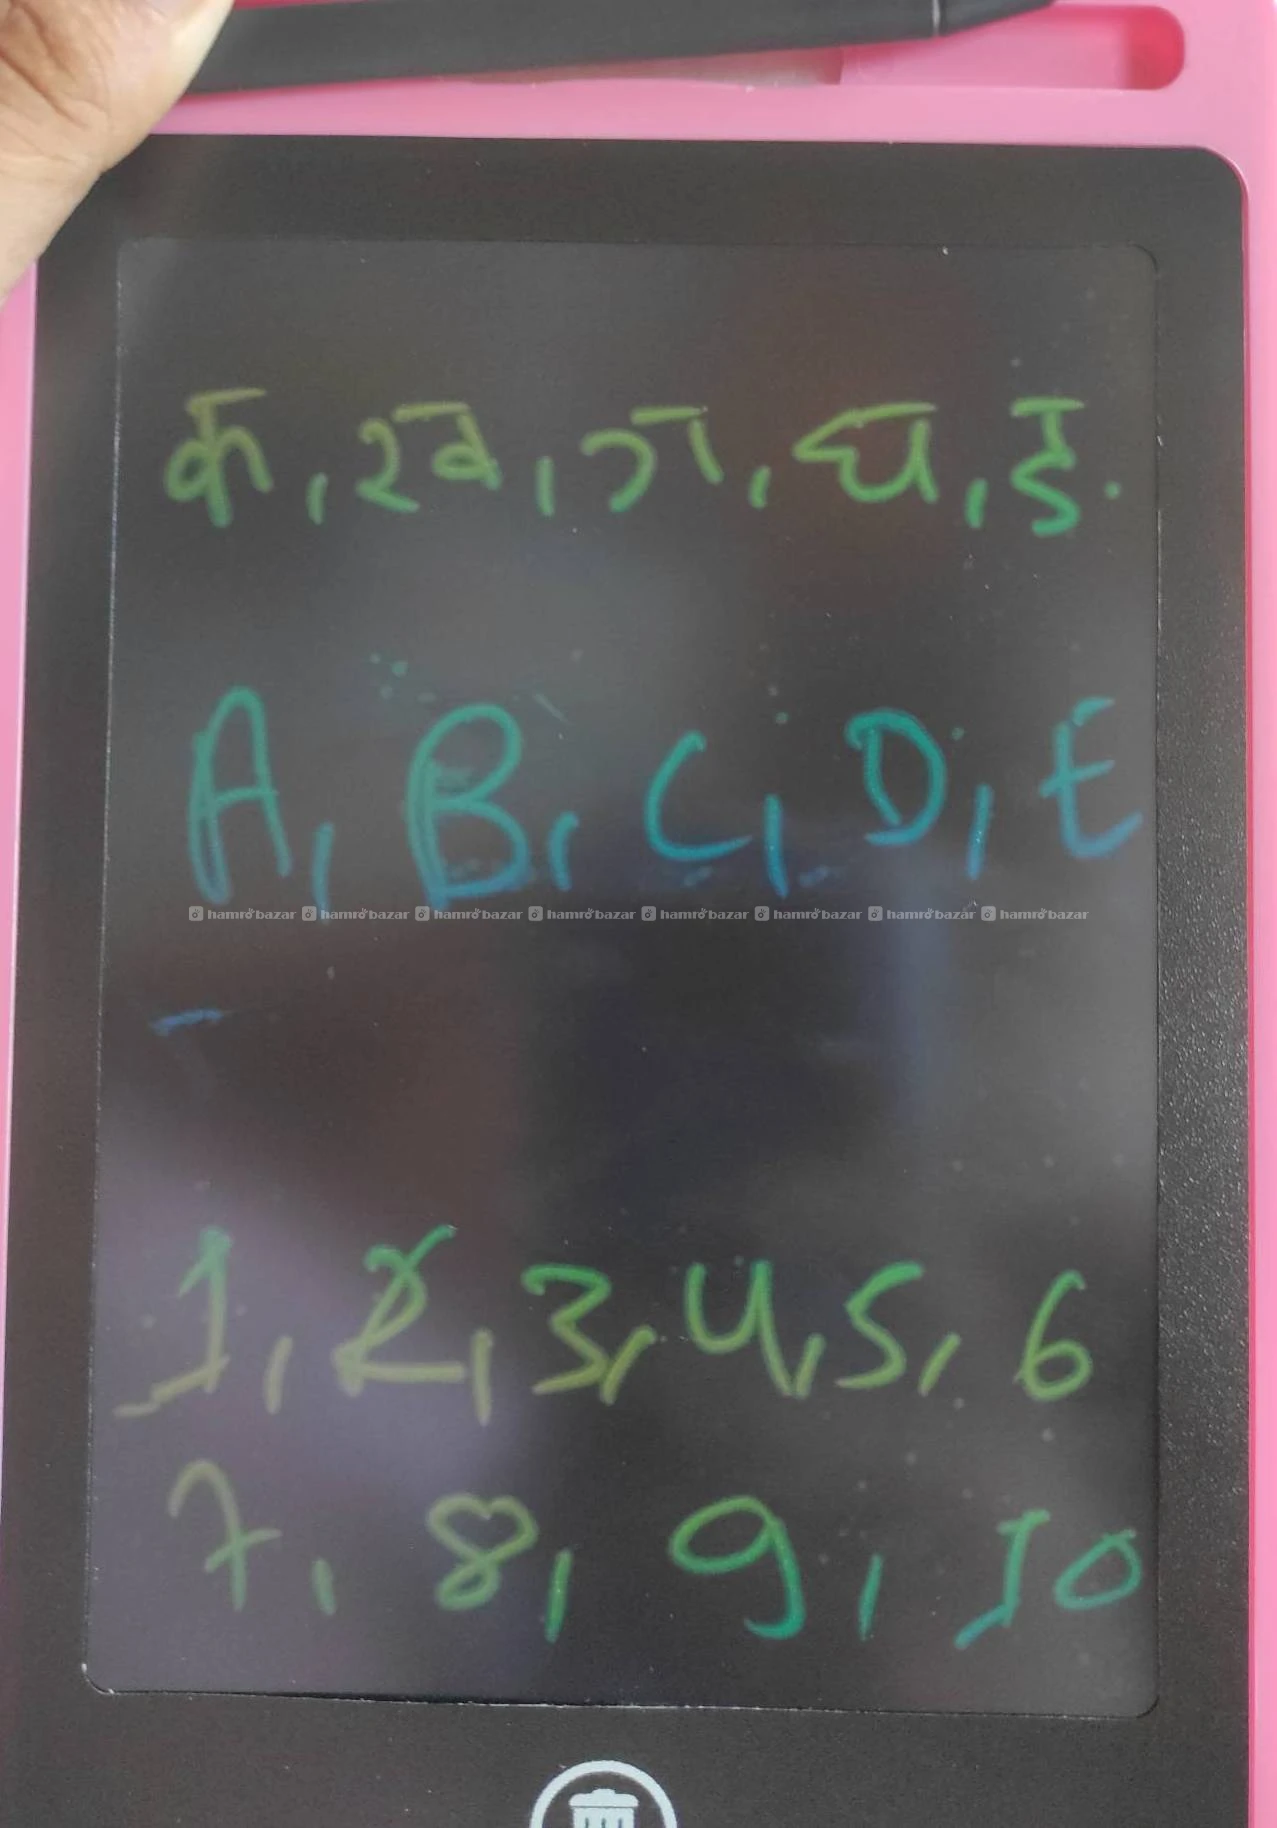 क, ख, ग, घ, ङ
A, B, C, D, E
hamrobazar hamrobazar hamrobazar hamrobazar hamrobazar hamrobazar hamrobazar hamrobazar
1, 2, 3, 4, 5, 6
7, 8, 9, 10